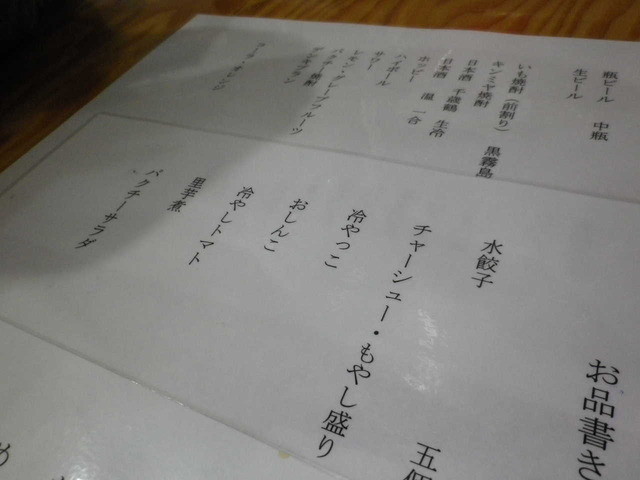 お品書き
水餃子
五個
チャーシュー・もやし盛り
冷やっこ
おしんこ
冷やしトマト
里芋煮
パクチーサラダ
瓶ビール 中瓶
生ビール
いも焼酎(前割り) 黒霧島
キンミヤ焼酎
日本酒 千歳鶴 生冷
日本酒 温 一合
ホッピー
ハイボール
サワー
レモン・グレープフルーツ